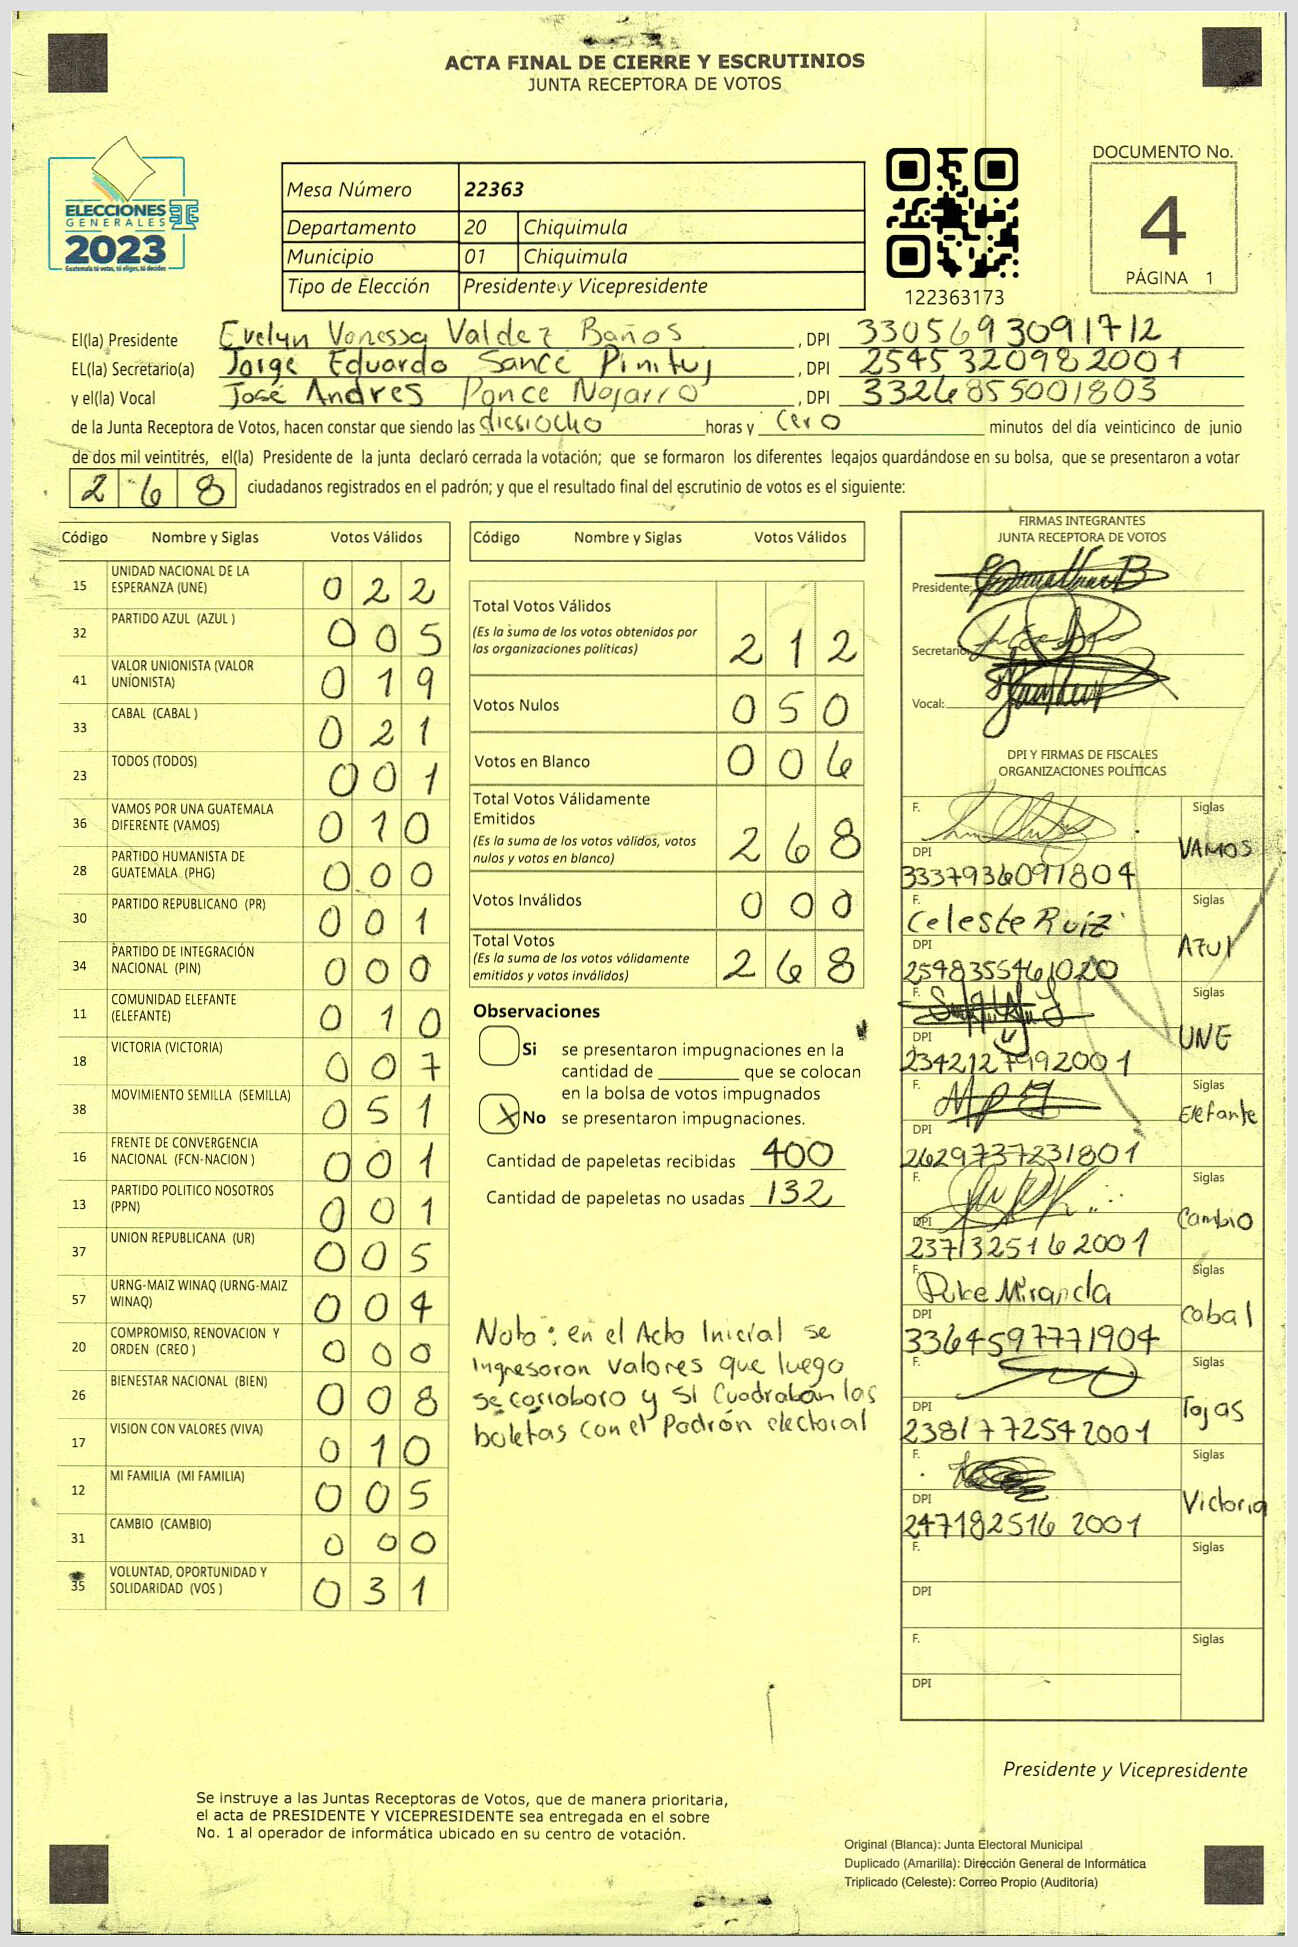 ACTA FINAL DE CIERRE Y ESCRUTINIOS
JUNTA RECEPTORA DE VOTOS
ELECCIONES
GENERALES
2023
Guatemala tú votas, tú eliges, tú decides
Mesa Número 22363
Departamento 20 Chiquimula
Municipio 01 Chiquimula
Tipo de Elección Presidente y Vicepresidente
122363173
DOCUMENTO No.
4
PÁGINA 1
El(la) Presidente Evelyn Vanessa Valdez Baños , DPI 3305693091712
EL(la) Secretario(a) Jorge Eduardo Sancé Pinituj , DPI 2545320982001
y el(la) Vocal José Andres Ponce Najarro , DPI 3326855001803
de la Junta Receptora de Votos, hacen constar que siendo las dieciocho horas y cero minutos del día veinticinco de junio
de dos mil veintitrés, el(la) Presidente de la junta declaró cerrada la votación; que se formaron los diferentes legajos guardándose en su bolsa, que se presentaron a votar
268 ciudadanos registrados en el padrón; y que el resultado final del escrutinio de votos es el siguiente:
Código Nombre y Siglas Votos Válidos
15 UNIDAD NACIONAL DE LA ESPERANZA (UNE) 022
32 PARTIDO AZUL (AZUL ) 005
41 VALOR UNIONISTA (VALOR UNIONISTA) 019
33 CABAL (CABAL ) 021
23 TODOS (TODOS) 001
36 VAMOS POR UNA GUATEMALA DIFERENTE (VAMOS) 010
28 PARTIDO HUMANISTA DE GUATEMALA (PHG) 000
30 PARTIDO REPUBLICANO (PR) 001
34 PARTIDO DE INTEGRACIÓN NACIONAL (PIN) 000
11 COMUNIDAD ELEFANTE (ELEFANTE) 010
18 VICTORIA (VICTORIA) 007
38 MOVIMIENTO SEMILLA (SEMILLA) 051
16 FRENTE DE CONVERGENCIA NACIONAL (FCN-NACION ) 001
13 PARTIDO POLITICO NOSOTROS (PPN) 001
37 UNION REPUBLICANA (UR) 005
57 URNG-MAIZ WINAQ (URNG-MAIZ WINAQ) 004
20 COMPROMISO, RENOVACION Y ORDEN (CREO ) 000
26 BIENESTAR NACIONAL (BIEN) 008
17 VISION CON VALORES (VIVA) 010
12 MI FAMILIA (MI FAMILIA) 005
31 CAMBIO (CAMBIO) 000
35 VOLUNTAD, OPORTUNIDAD Y SOLIDARIDAD (VOS ) 031
Código Nombre y Siglas Votos Válidos
Total Votos Válidos
(Es la suma de los votos obtenidos por
las organizaciones políticas) 212
Votos Nulos 050
Votos en Blanco 006
Total Votos Válidamente
Emitidos
(Es la suma de los votos válidos, votos
nulos y votos en blanco) 268
Votos Inválidos 000
Total Votos
(Es la suma de los votos válidamente
emitidos y votos inválidos) 268
Observaciones
Si se presentaron impugnaciones en la
cantidad de ________ que se colocan
en la bolsa de votos impugnados
X No se presentaron impugnaciones.
Cantidad de papeletas recibidas 400
Cantidad de papeletas no usadas 132
Nota: en el Acta Inicial se
ingresaron valores que luego
se corroboro y si cuadraban las
boletas con el Padrón electoral
FIRMAS INTEGRANTES
JUNTA RECEPTORA DE VOTOS
Presidente:
Secretario:
Vocal:
DPI Y FIRMAS DE FISCALES
ORGANIZACIONES POLÍTICAS
F. Siglas
DPI VAMOS
3337936091804
F. Siglas
Celeste Ruiz
DPI Azul
2548355461020
F. Siglas
DPI UNE
2342127992001
F. Siglas
DPI Elefante
2629737231801
F. Siglas
DPI Cambio
2371325162001
F. Siglas
Miranda
DPI Cabal
3364597771904
F. Siglas
DPI Tojas
2381772542001
F. Siglas
DPI Victoria
2471825162001
F. Siglas
DPI
F. Siglas
DPI
Presidente y Vicepresidente
Se instruye a las Juntas Receptoras de Votos, que de manera prioritaria,
el acta de PRESIDENTE Y VICEPRESIDENTE sea entregada en el sobre
No. 1 al operador de informática ubicado en su centro de votación.
Original (Blanca): Junta Electoral Municipal
Duplicado (Amarilla): Dirección General de Informática
Triplicado (Celeste): Correo Propio (Auditoría)